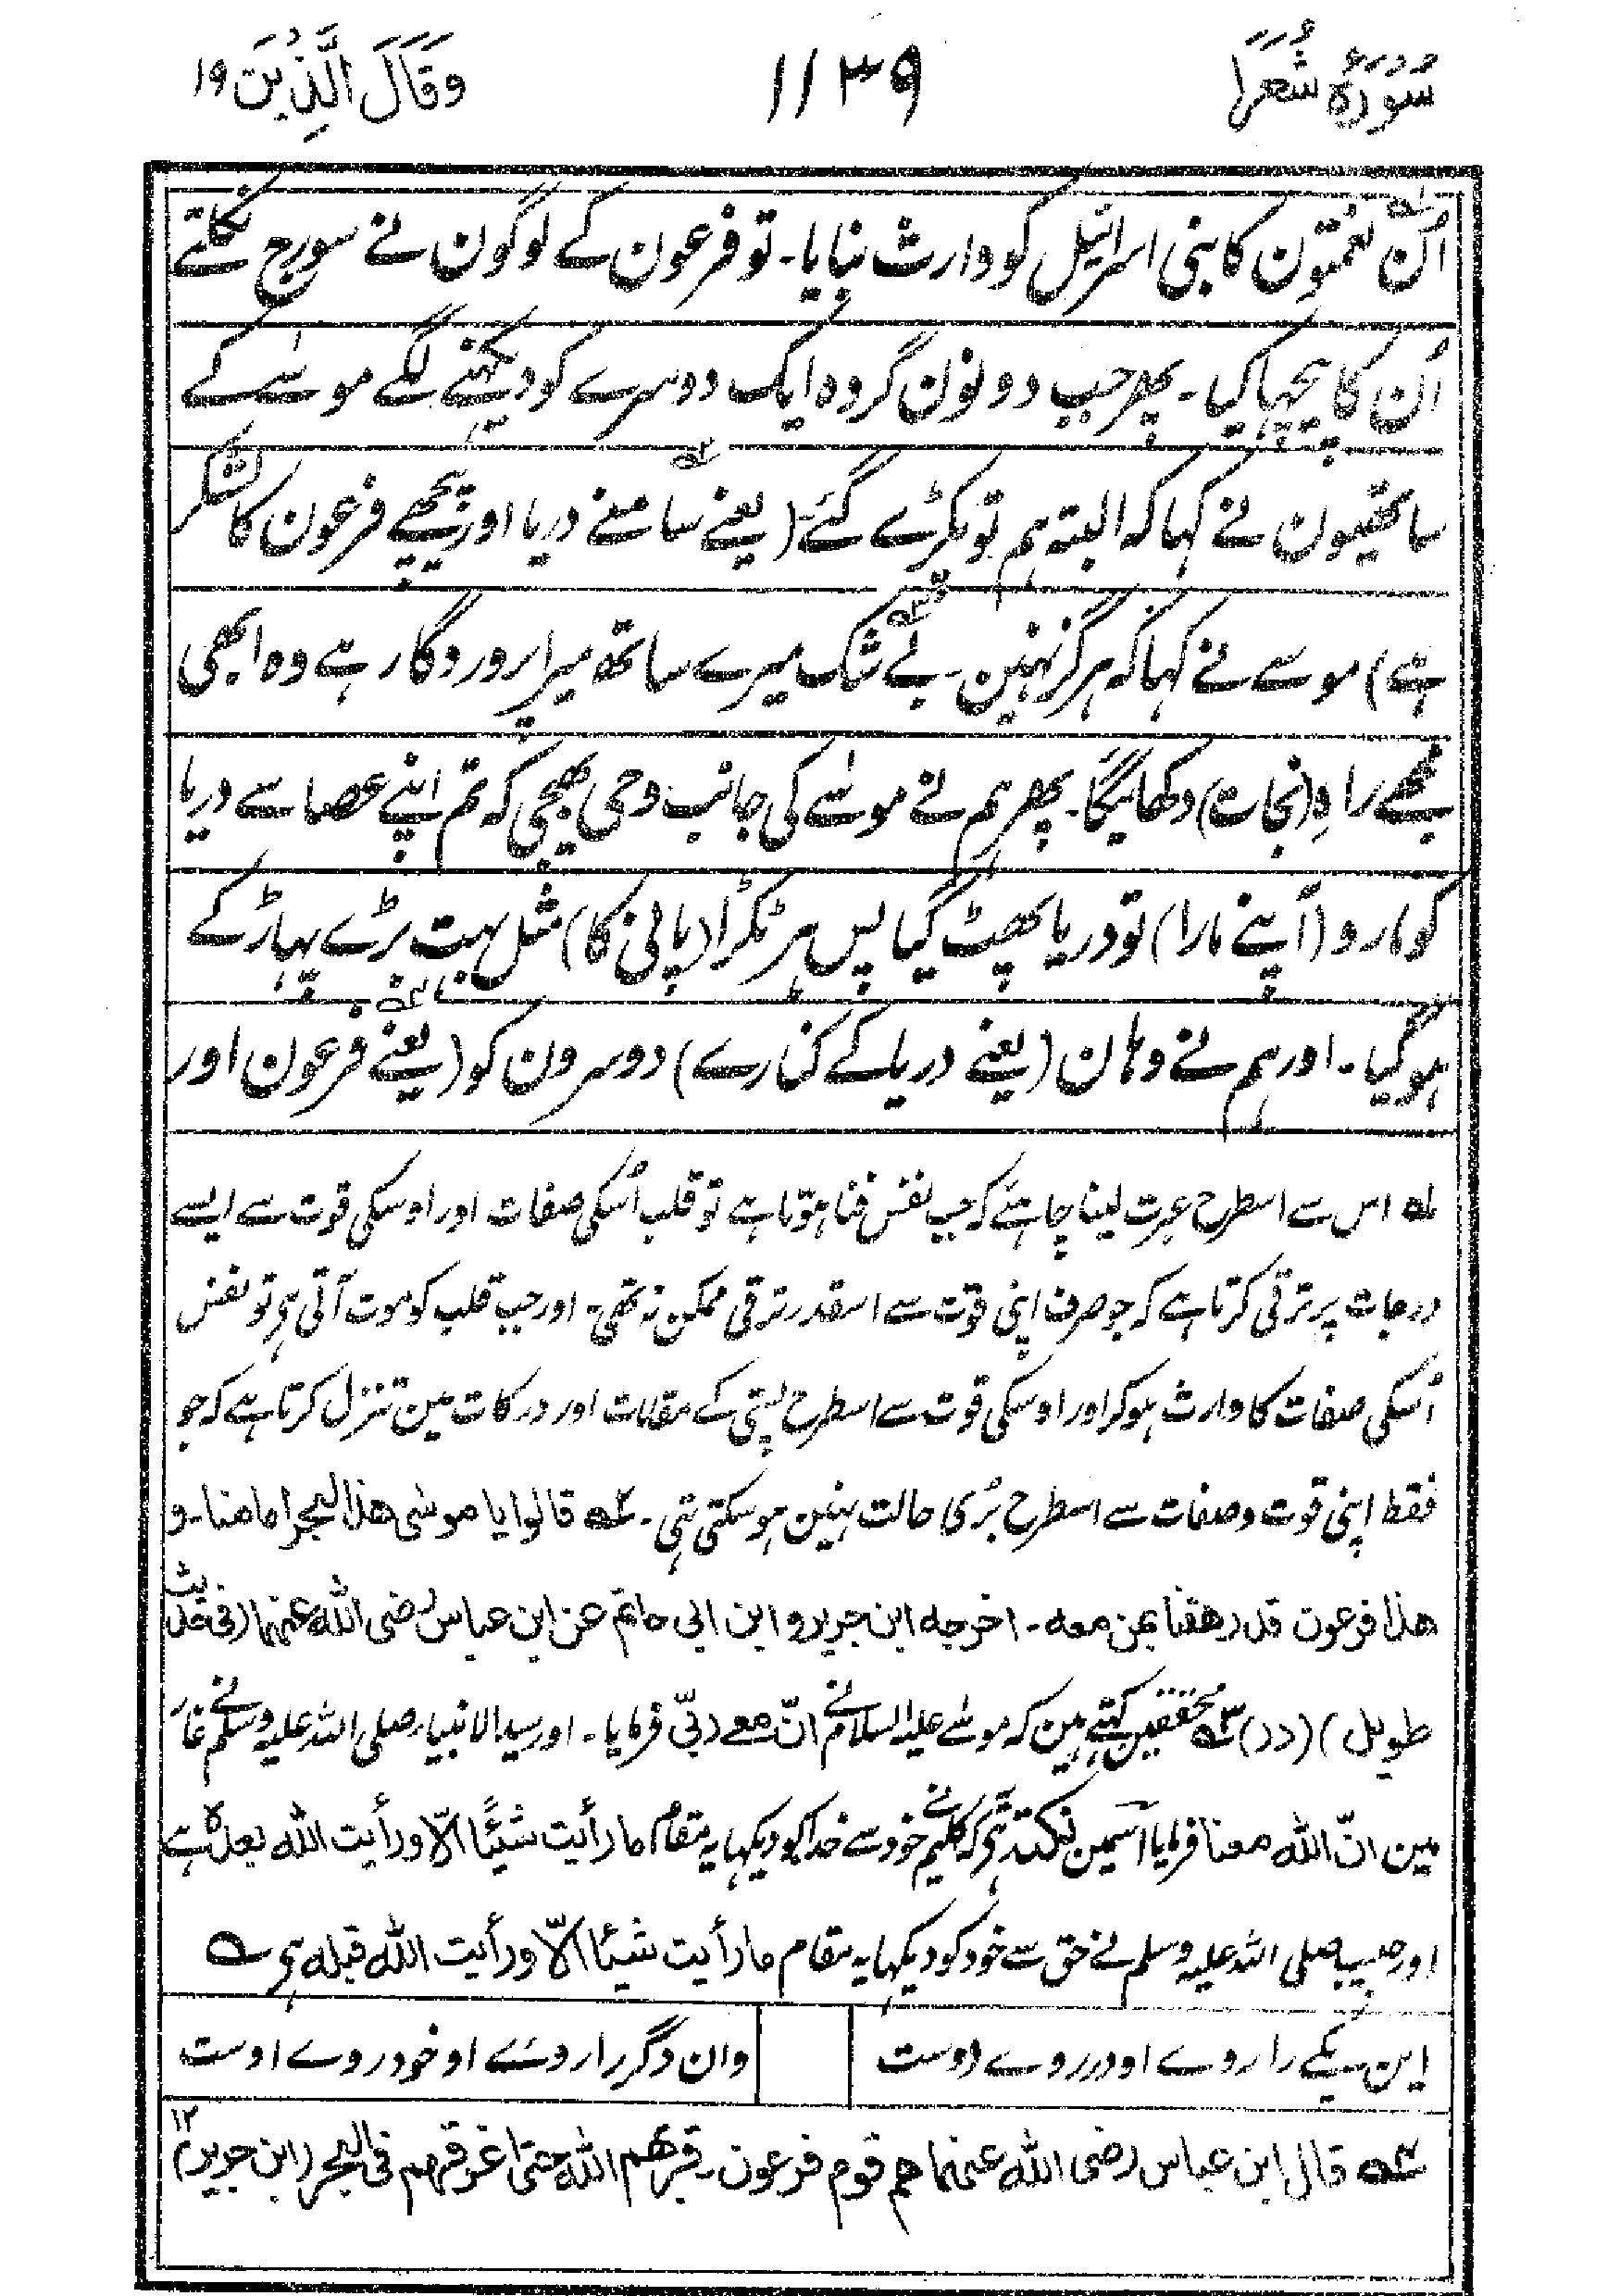 سُوْرَةُ شُعَرَا
۱۱۳۹
وَقَالَ الَّذِيْنَ ۱۹
اُن ؎۱ نعمتون کا بنی اسرائیل کو وارث بنایا۔ تو فرعون کے لوگون نے سورج نکلتے
اُن کا پیچھا کیا۔ پھر جب دونون گروہ ایک دوسرے کو دیکھنے لگے موسٰے کے
ساتھیون نے کہا کہ البتہ ہم تو پکڑے گئے ؎۲ (یعنے سامنے دریا اور پیچھے فرعون کا لشکر
ہے) موسے نے کہا کہ ہرگز نہین۔ بے شک ؎۳ میرے ساتھ میرا پروردگار ہے وہ ابھی
مجھے راہِ (نجات) دکھائیگا۔ پھر ہم نے موسٰے کی جانب وحی بھیجی کہ تم اپنے عصا سے دریا
کو مارو (آپنے مارا) تو دریا پھٹ گیا پس ہر ٹکڑا (پانی کا) مثل بہت بڑے پہاڑ کے
ہوگیا۔ اور ہم نے وہان (یعنے دریا کے کنارے) دوسرون کو ؎۴ (یعنے فرعون اور
؎۱ اس سے اسطرح عبرت لینا چاہئے کہ جب نفس فنا ہوتا ہے تو قلب اُسکی صفات اور اوسکی قوت سے ایسے
درجات پر ترقی کرتا ہے کہ جو صرف اپنی قوت سے اسقدر ترقی ممکن نہ تھی۔ اور جب قلب کو موت آتی ہی تو نفس
اُسکی صفات کا وارث ہوکر اور اوسکی قوت سے اسطرح پستی کے مقامات اور درکات مین تنزل کرتا ہے کہ جو
فقط اپنی قوت و صفات سے اسطرح بُری حالت نہین ہوسکتی تہی۔ ؎۲ قالوا یا موسٰی هذا البحر امامنا۔ و
هذا فرعون قد رهقنا بمن معه۔ اخرجه ابن جریر و ابن ابی حاتم عن ابن عباس رضی الله عنهما (فی حدیث
طویل) (در) ؎۳ محققین کہتے ہین کہ موسٰے علیہ السلام نے انّ معے ربّی فرمایا۔ اور سید الانبیا صلی اللہ علیہ وسلم نے غار
مین انّ الله معنا فرمایا اسمین نکتہ یہ ہی کہ کلیم نے خود سے خدا کو دیکھا یہ مقام ما رأیت شیئًا الّا ورأیت الله بعدہ ہے
اور حبیب صلی اللہ علیہ وسلم نے حق سے خود کو دیکھا یہ مقام ما رأیت شیئا الّا ورأیت الله قبله ہی ؎
این یکے را روے او در روے دوست
وان دگر را روے او خود روے اوست
؎۴ قال ابن عباس رضی الله عنهما هم قوم فرعون۔ قربهم الله حتی اغرقهم فی البحر (ابن جریر) ۱۲